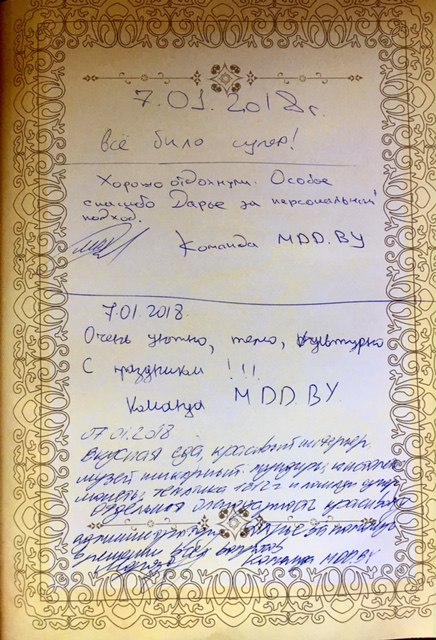 7.01.2018г.
Всё было супер!
Хорошо отдохнули. Особое
спасибо Дарье за персональный
подход.
Команда MDD.BY
7.01.2018
Очень уютно, тепло, культурно
С праздником !!!
Команда MDD.BY
07.01.2018
Вкусная еда, красивый интерьер
музей шикарный. мундиры,
монеты, 1812 г и
Отдельная благодарность красивому
администратору Дарье за помощь
в решении всех
Команда MDD.BY